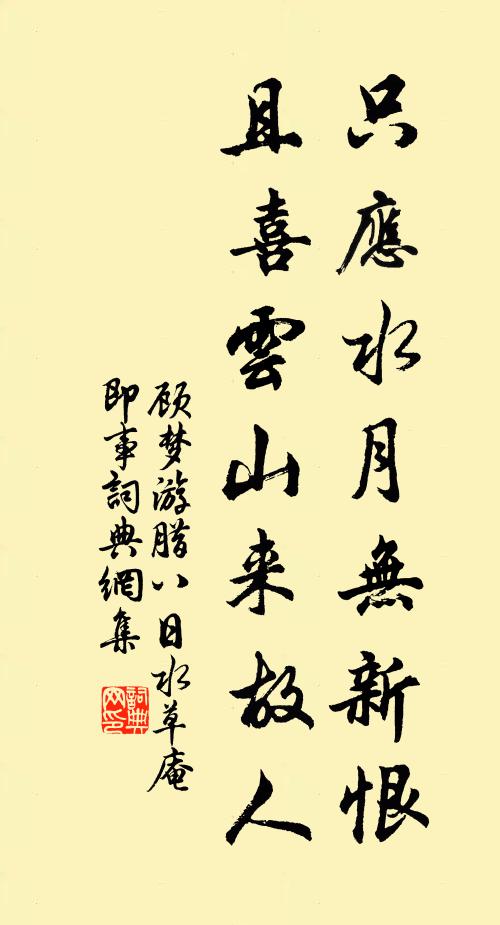 只應水月無新恨
且喜雲山来故人
顾梦游腊八日水草庵
即事詞典網集
詞典网印